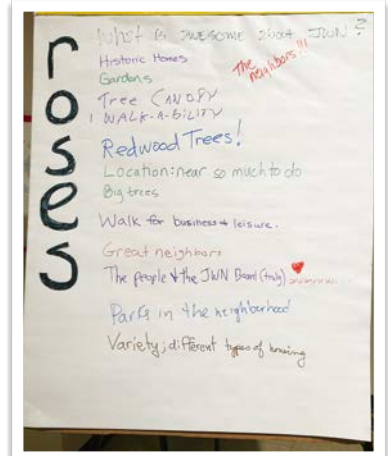 roses
What is awesome about JWN?
The neighbors!!!
Historic Homes
Gardens
Tree CANOPY
WALK-A-BiLiTY
Redwood Trees!
Location: near so much to do
Big trees
Walk for business & leisure.
Great neighbors
The people & the JWN Board (truly)
Parks in the neighborhood
Variety; different types of housing